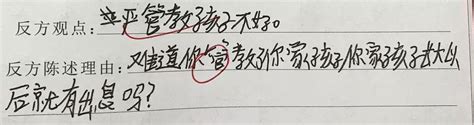 反方观点:严管教好孩子不好。
反方陈述理由:难道你不管教好你家孩子,你家孩子长大以
后就有出息吗?